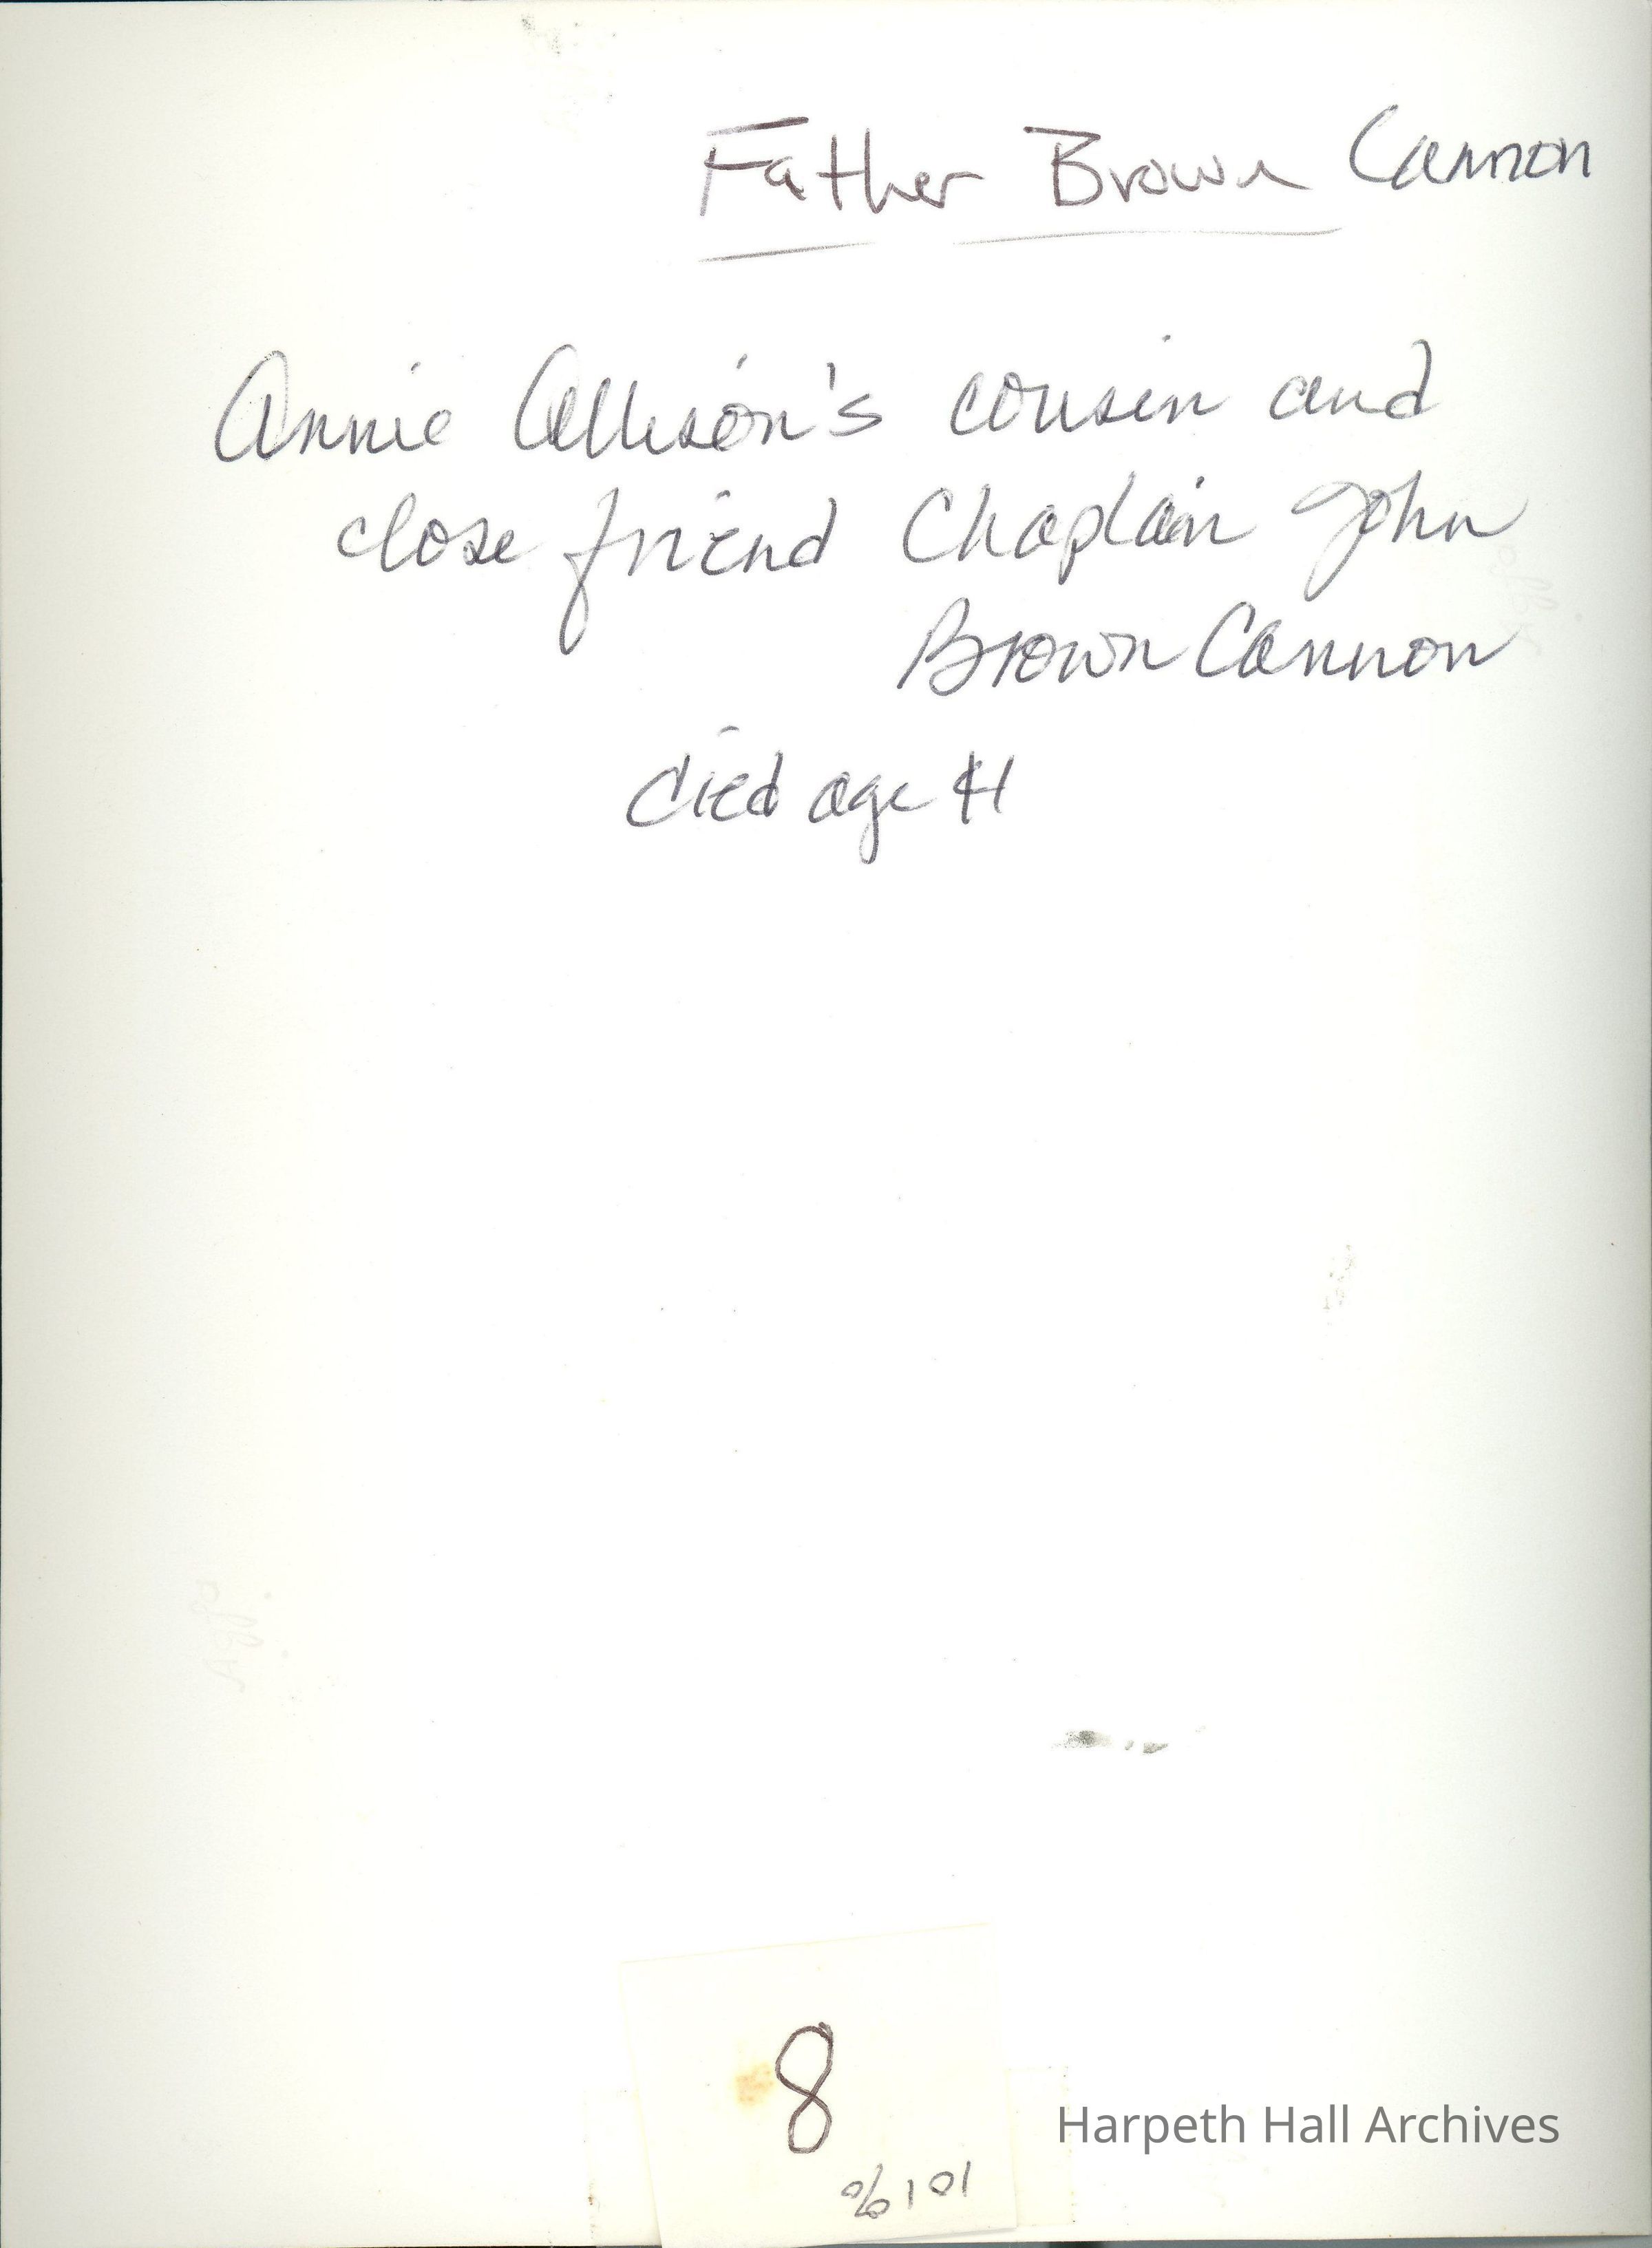 Father Brown Cannon
Annie Allison's cousin and
close friend Chaplain John
Brown Cannon
died age 41
8
Harpeth Hall Archives